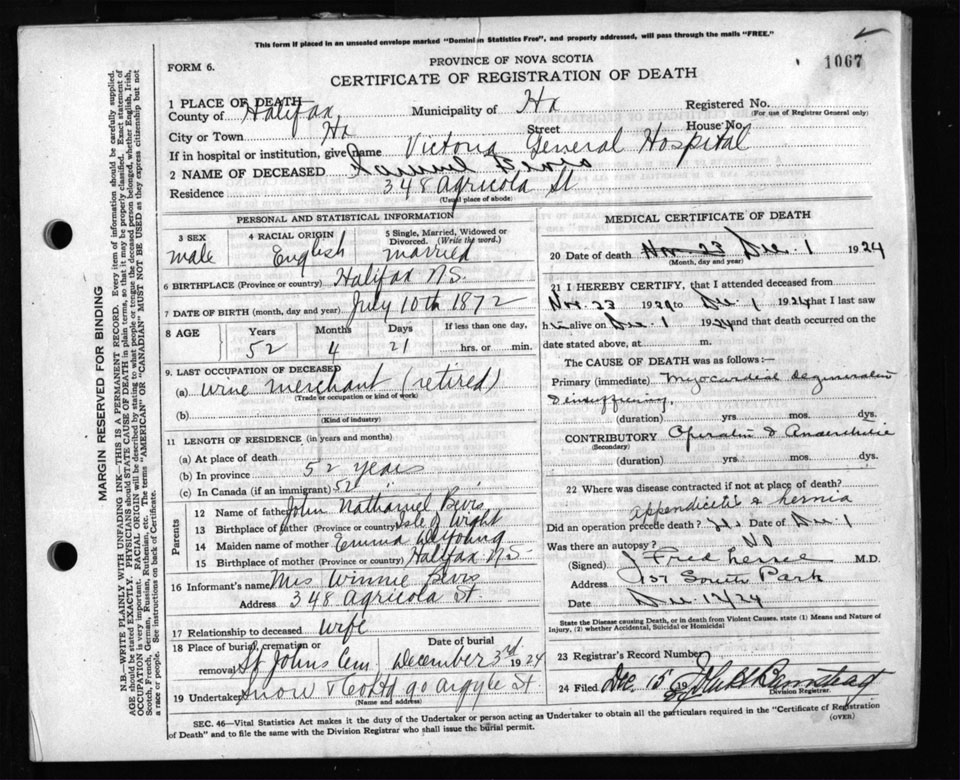 This form if placed in an unsealed envelope marked "Dominion Statistics Free", and properly addressed, will pass through the mails "FREE."
1067
PROVINCE OF NOVA SCOTIA
FORM 6.
CERTIFICATE OF REGISTRATION OF DEATH
1 PLACE OF DEATH
County of Halifax Municipality of Hx Registered No.
(For use of Registrar General only)
City or Town Hx Street House No.
If in hospital or institution, give name Victoria General Hospital
2 NAME OF DECEASED Samuel Bevis
Residence 348 Agricola St
(Usual place of abode)
PERSONAL AND STATISTICAL INFORMATION
3 SEX 4 RACIAL ORIGIN 5 Single, Married, Widowed or Divorced. (Write the word.)
male English married
6 BIRTHPLACE (Province or country) Halifax N.S.
7 DATE OF BIRTH (month, day and year) July 10th 1872
8 AGE Years Months Days If less than one day,
52 4 21 hrs. or min.
9. LAST OCCUPATION OF DECEASED
(a) wine merchant (retired)
(Trade or occupation or kind of work)
(b)
(Kind of industry)
11 LENGTH OF RESIDENCE (in years and months)
(a) At place of death
(b) In province 52 years
(c) In Canada (if an immigrant) 52 "
Parents
12 Name of father John Nathaniel Bevis
13 Birthplace of father (Province or country) Isle of Wight
14 Maiden name of mother Emma DeYoung
15 Birthplace of mother (Province or country) Halifax N.S.
16 Informant's name Mrs Winnie Bevis
Address 348 Agricola St.
17 Relationship to deceased wife
18 Place of burial, cremation or removal St Johns Cem Date of burial December 3rd 1924
19 Undertaker Snow & Co Ltd 90 Argyle St
(Name and address)
MEDICAL CERTIFICATE OF DEATH
20 Date of death Nov 23 Dec. 1 1924
(Month, day and year)
21 I HEREBY CERTIFY, that I attended deceased from
Nov. 23 1924 to Dec 1 1924 that I last saw
him alive on Dec 1 1924 and that death occurred on the
date stated above, at m.
The CAUSE OF DEATH was as follows:—
Primary (immediate) Myocardial degeneration
(duration) yrs. mos. dys.
CONTRIBUTORY Operation & Anaesthetic
(Secondary)
(duration) yrs. mos. dys.
22 Where was disease contracted if not at place of death?
appendicitis & hernia
Did an operation precede death? Yes Date of Dec. 1
Was there an autopsy? No
(Signed) J Fred Lessel M.D.
Address 137 South Park
Date Dec 12/24
State the Disease causing Death, or in death from Violent Causes, state (1) Means and Nature of Injury, (2) whether Accidental, Suicidal or Homicidal
23 Registrar's Record Number
24 Filed Dec. 15 19
Division Registrar.
SEC. 46—Vital Statistics Act makes it the duty of the Undertaker or person acting as Undertaker to obtain all the particulars required in the "Certificate of Registration of Death" and to file the same with the Division Registrar who shall issue the burial permit.
(OVER)
MARGIN RESERVED FOR BINDING
N.B.—WRITE PLAINLY WITH UNFADING INK—THIS IS A PERMANENT RECORD. Every item of information should be carefully supplied.
AGE should be stated EXACTLY. PHYSICIANS should STATE CAUSE OF DEATH in plain terms, so that it may be properly classified. Exact statement of
OCCUPATION is very important. RACIAL ORIGIN will be described by stating to what people or tongue the deceased person belonged, whether English, Irish,
Scotch, French, German, Russian, Ruthenian, etc. The terms "AMERICAN" or "CANADIAN" MUST NOT BE USED as they express citizenship but not
a race or people. See instructions on back of Certificate.